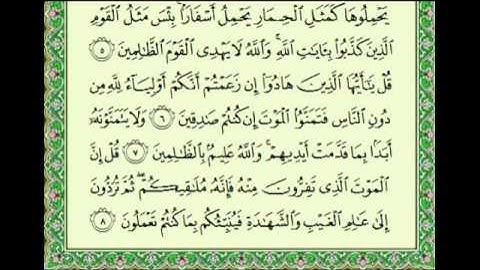 يَحْمِلُوهَا كَمَثَلِ الْحِمَارِ يَحْمِلُ أَسْفَارًا ۚ بِئْسَ مَثَلُ الْقَوْمِ
الَّذِينَ كَذَّبُوا۟ بِـَٔايَاتِ اللَّهِ ۚ وَاللَّهُ لَا يَهْدِى الْقَوْمَ الظَّالِمِينَ ٥
قُلْ يَـٰٓأَيُّهَا الَّذِينَ هَادُوٓا۟ إِن زَعَمْتُمْ أَنَّكُمْ أَوْلِيَآءُ لِلَّهِ مِن
دُونِ النَّاسِ فَتَمَنَّوُا۟ الْمَوْتَ إِن كُنتُمْ صَـٰدِقِينَ ٦ وَلَا يَتَمَنَّوْنَهُۥٓ
أَبَدًا بِمَا قَدَّمَتْ أَيْدِيهِمْ ۚ وَاللَّهُ عَلِيمٌۢ بِالظَّـٰلِمِينَ ٧ قُلْ إِنَّ
الْمَوْتَ الَّذِى تَفِرُّونَ مِنْهُ فَإِنَّهُۥ مُلَـٰقِيكُمْ ۖ ثُمَّ تُرَدُّونَ
إِلَىٰ عَـٰلِمِ الْغَيْبِ وَالشَّهَـٰدَةِ فَيُنَبِّئُكُم بِمَا كُنتُمْ تَعْمَلُونَ ٨